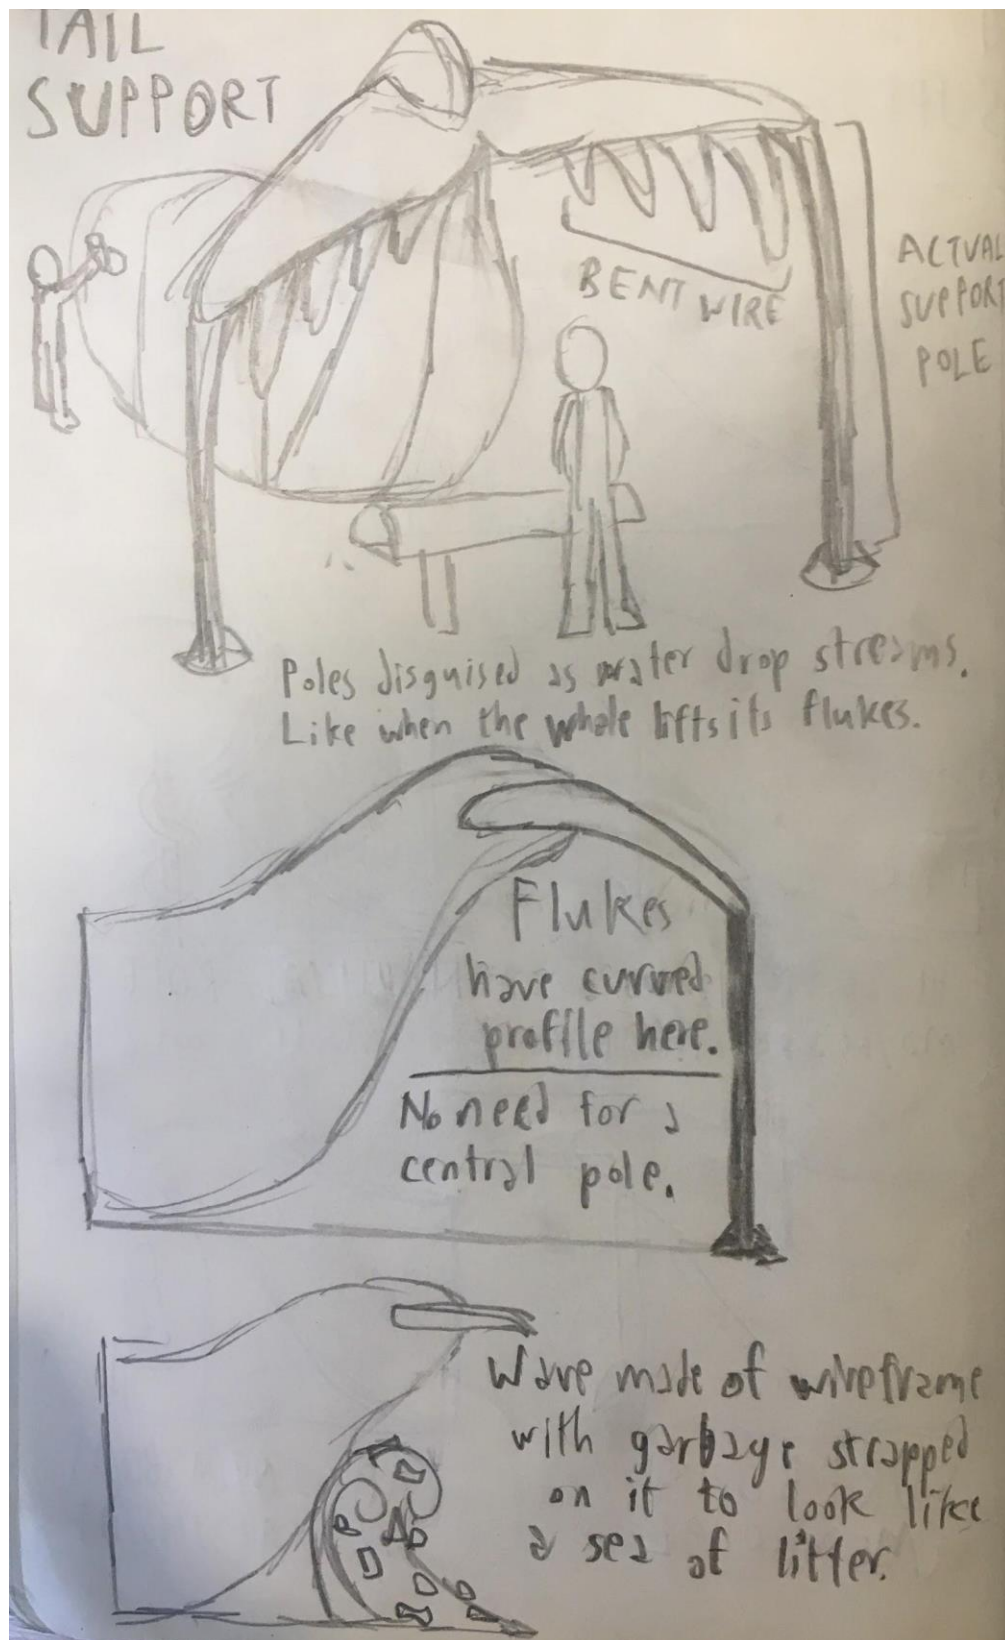 TAIL
SUPPORT
BENT WIRE
ACTUAL
SUPPORT
POLE
Poles disguised as water drop streams.
Like when the whale lifts its flukes.
Flukes
have curved
profile here.
No need for a
central pole.
Wave made of wireframe
with garbage strapped
on it to look like
a sea of litter.